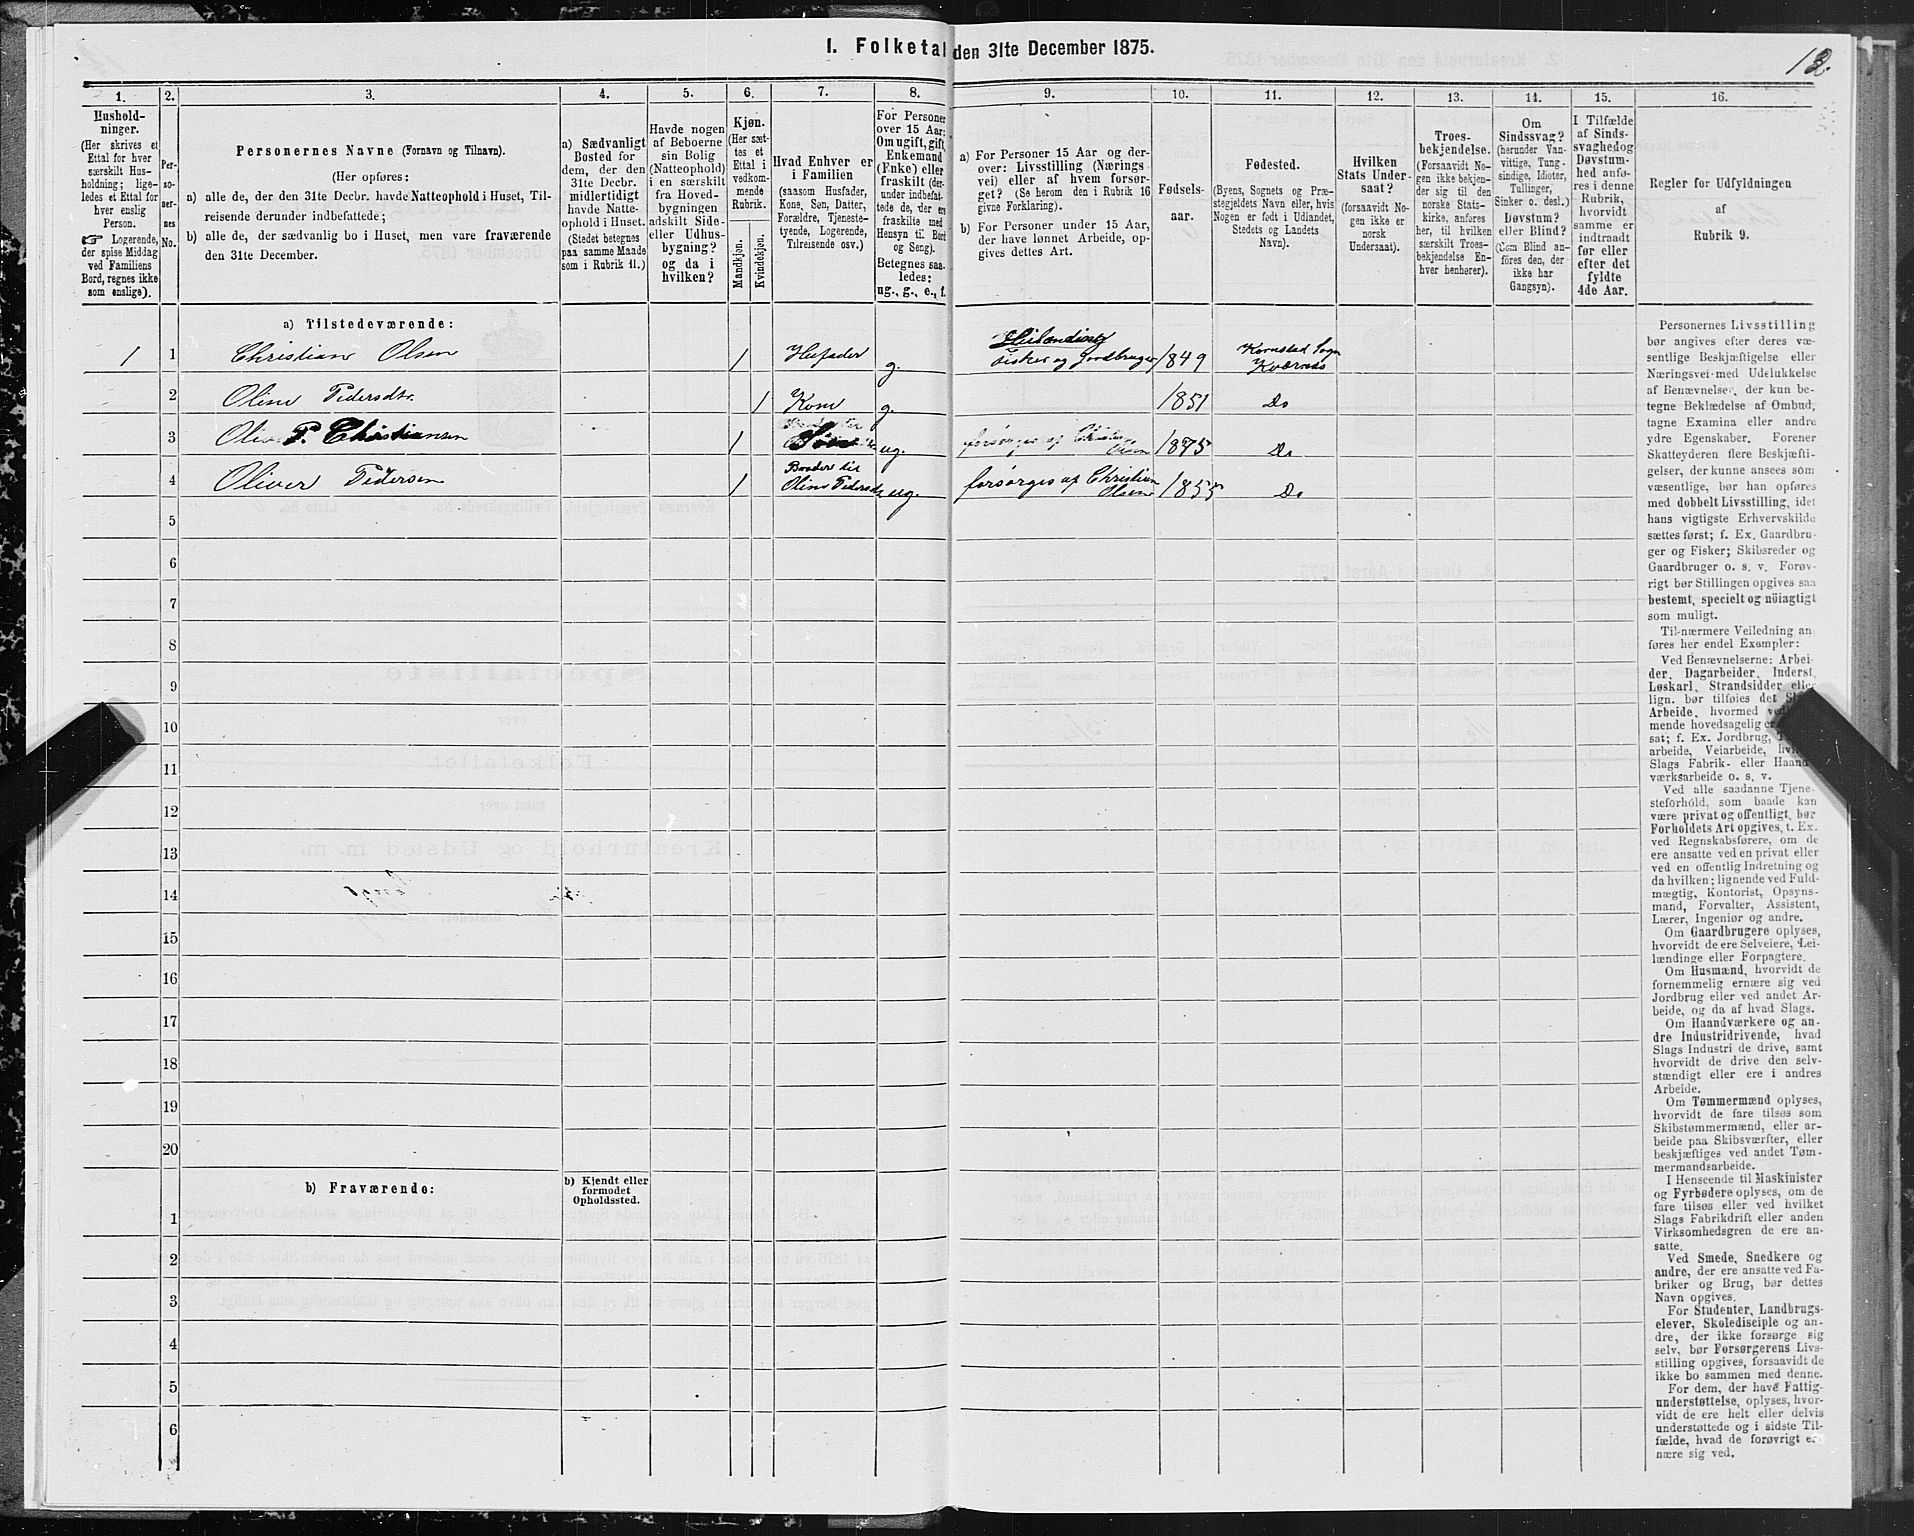 I. Folketal den 31te December 1875.
12.
1. 2. 3. 4. 5. 6. 7. 8. 9. 10. 11. 12. 13. 14. 15. 16.
Hushold-
ninger.
(Her skrives et
Ettal for hver
særskilt Hus-
holdning; lige-
ledes et Ettal for
hver enslig
Person.
☞ Logerende,
der spise Middag
ved Familiens
Bord, regnes ikke
som enslige).
Per-
so-
ner-
nes
No.
Personernes Navne (Fornavn og Tilnavn).
(Her opføres:
a) alle de, der den 31te Decbr. havde Natteophold i Huset, Til-
reisende derunder indbefattede;
b) alle de, der sædvanlig bo i Huset, men vare fraværende
den 31te December.
a) Sædvanligt
Bosted for
dem, der den
31te Decbr.
midlertidigt
havde Natte-
ophold i Huset.
(Stedet betegnes
paa samme Maade
som i Rubrik 11.)
Havde nogen
af Beboerne
sin Bolig
(Natteophold)
i en særskilt
fra Hoved-
bygningen
adskilt Side-
eller Udhus-
bygning?
og da i
hvilken?
Kjøn.
(Her sæt-
tes et
Ettal i
vedkom-
mende
Rubrik.
Mandkjøn.
Kvindekjøn.
Hvad Enhver er
i Familien
(saasom Husfader,
Kone, Søn, Datter,
Forældre, Tjeneste-
tyende, Logerende,
Tilreisende osv.)
For Personer
over 15 Aar:
Om ugift, gift,
Enkemand
(Enke) eller
fraskilt (der-
under indbefat-
tede de, der ere
fraskilte med
Hensyn til Bord
og Seng).
Betegnes saa-
ledes:
ug., g., e., f.
a) For Personer 15 Aar og der-
over: Livsstilling (Nærings-
vei) eller af hvem forsør-
get? (Se herom den i Rubrik 16
givne Forklaring).
b) For Personer under 15 Aar,
der have lønnet Arbeide, op-
gives dettes Art.
Fødsels-
aar.
Fødested.
(Byens, Sognets og Præ-
stegjeldets Navn eller, hvis
Nogen er født i Udlandet,
Stedets og Landets
Navn).
Hvilken
Stats Under-
saat?
(forsaavidt No-
gen ikke er
norsk
Undersaat).
Troes-
bekjendelse.
(Forsaavidt No-
gen ikke bekjen-
der sig til den
norske Stats-
kirke, anføres
her, til hvilken
særskilt Troes-
bekjendelse En-
hver henhører).
Om
Sindssvag?
(herunder Van-
vittige, Tung-
sindige, Idioter,
Tullinger,
Sinker o. desl.)
Døvstum?
eller Blind?
(Som Blind an-
føres den, der
ikke har
Gangsyn).
I Tilfælde
af Sinds-
svaghedog
Døvstum-
hed anfø-
res i denne
Rubrik,
hvorvidt
samme er
indtraadt
før eller
efter det
fyldte
4de Aar.
Regler for Udfyldningen
af
Rubrik 9.
a) Tilstedeværende:
1 1 Christian Olsen 1 Husfader g. Fisker og Jordbruger 1849 Kornstad Sogn
Kværnes
2 Oline Pedersdtr. 1 Kone g. 1851 Do
3 Oliver P. Christiansen 1 Søn ug. forsørges af Christian
Olsen 1875 Do
4 Oliver Pedersen 1 Broder til
Oline Pedersdtr ug. forsørges af Christian
Olsen 1855 Do
5
6
7
8
9
10
11
12
13
14
15
16
17
18
19
20
b) Fraværende:
b) Kjendt eller
formodet
Opholdssted.
1
2
3
4
5
6
Personernes Livsstilling
bør angives efter deres væ-
sentlige Beskjæftigelse eller
Næringsvei med Udelukkelse
af Benævnelser, der kun be-
tegne Beklædelse af Ombud,
tagne Examina eller andre
ydre Egenskaber. Forener
Skatteyderen flere Beskjæfti-
gelser, der kunne ansees som
væsentlige, bør han opføres
med dobbelt Livsstilling, idet
hans vigtigste Erhvervskilde
sættes først; f. Ex. Gaardbru-
ger og Fisker; Skibsreder og
Gaardbruger o. s. v. Forøv-
rigt bør Stillingen opgives saa
bestemt, specielt og nöiagtigt
som muligt.
Til nærmere Veiledning an-
føres her endel Exempler:
Ved Benævnelserne: Arbei-
der, Dagarbeider, Inderst,
Løskarl, Strandsidder eller
lign. bør tilføies det Slags
Arbeide, hvormed vedkom-
mende hovedsagelig er
sat; f. Ex. Jordbrug,
arbeide, Veiarbeide, hvilket
Slags Fabrik- eller Haand-
værksarbeide o. s. v.
Ved alle saadanne Tjene-
steforhold, som baade kan
være privat og offentligt, bør
Forholdets Art opgives, t. Ex.
ved Regnskabsførere, om de
ere ansatte ved en privat eller
ved en offentlig Indretning og
da hvilken; lignende ved Fuld-
mægtig, Kontorist, Opsyns-
mand, Forvalter, Assistent,
Lærer, Ingeniør og andre.
Om Gaardbrugere oplyses,
hvorvidt de ere Selveiere, Lei-
lændinge eller Forpagtere.
Om Husmænd, hvorvidt de
fornemmelig ernære sig ved
Jordbrug eller ved andet Ar-
beide, og da af hvad Slags.
Om Haandværkere og an-
dre Industridrivende, hvad
Slags Industri de drive, samt
hvorvidt de drive den selv-
stændigt eller ere i andres
Arbeide.
Om Tømmermænd oplyses,
hvorvidt de fare tilsøs som
Skibstømmermænd, eller ar-
beide paa Skibsværfter, eller
beskjæftiges ved andet Tøm-
mermandsarbeide.
I Henseende til Maskinister
og Fyrbødere oplyses, om de
fare tilsøs eller ved hvilket
Slags Fabrikdrift eller anden
Virksomhedsgren de ere an-
satte.
Ved Smede, Snedkere og
andre, der ere ansatte ved Fa-
briker og Brug, bør dettes
Navn opgives.
For Studenter, Landbrugs-
elever, Skoledisciple og an-
dre, der ikke forsørge sig
selv, bør Forsørgerens Livs-
stilling opgives, forsaavidt de
ikke bo sammen med denne.
For dem, der have Fattig-
understøttelse, oplyses, hvor-
vidt de ere helt eller delvis
understøttede og i sidste Til-
fælde, hvad de forøvrigt er-
nære sig ved.